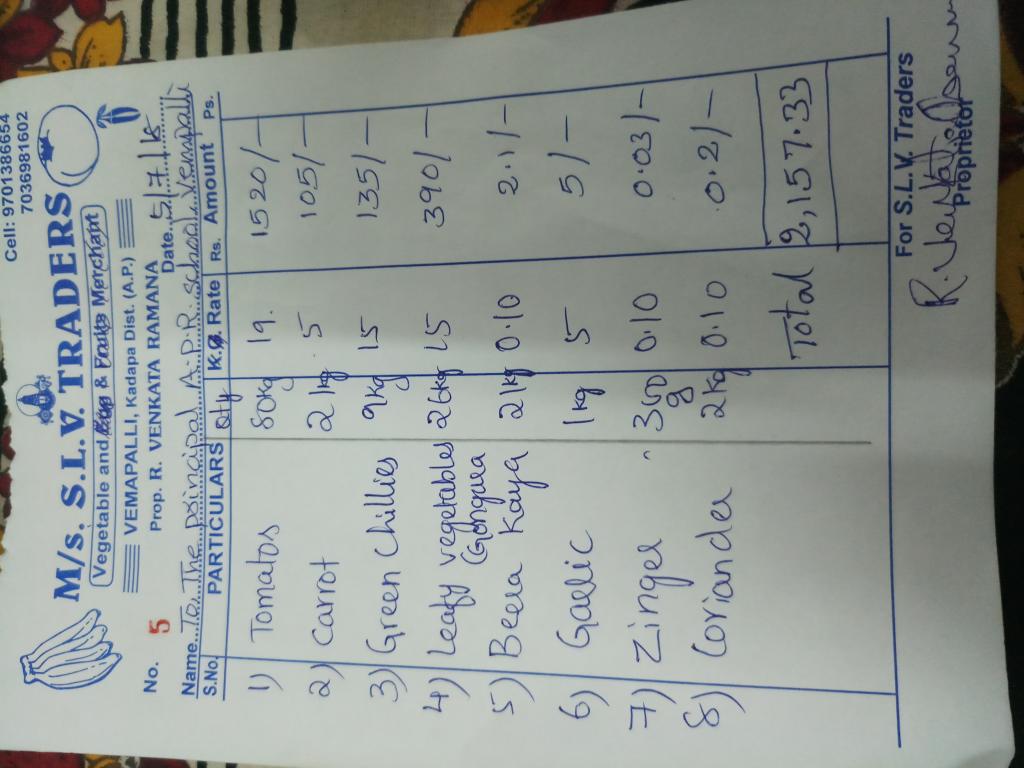 Cell: 9701386654
7036981602
M/s. S.L.V. TRADERS
Vegetable and & Fruits Merchant
VEMAPALLI, Kadapa Dist. (A.P.)
Prop. R. VENKATA RAMANA
No. 5 Date 5/7/18
Name To The principal A.P.R. School Vempalli
S.No. PARTICULARS Qty K.g. Rate Rs. Amount Ps.
1) Tomatos 80kg 19. 1520/-
2) Carrot 21kg 5 105/-
3) Green Chillies 9kg 15 135/-
4) Leafy vegetables 26kg 15 390/-
(Gongura
5) Beera Kaya 21kg 0.10 2.1/-
6) Garlic 1kg 5 5/-
7) Zinger 300 g 0.10 0.03/-
8) Coriander 2kg 0.10 0.2/-
Total 2,157.33
For S.L.V. Traders
Proprietor